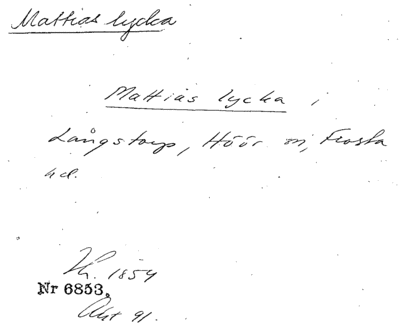 Mattias lycka
Mattias lycka,
Långstorp, Höör sn, Frosta
hd.
Lk. 1854
Nr 6853,
Akt 91.